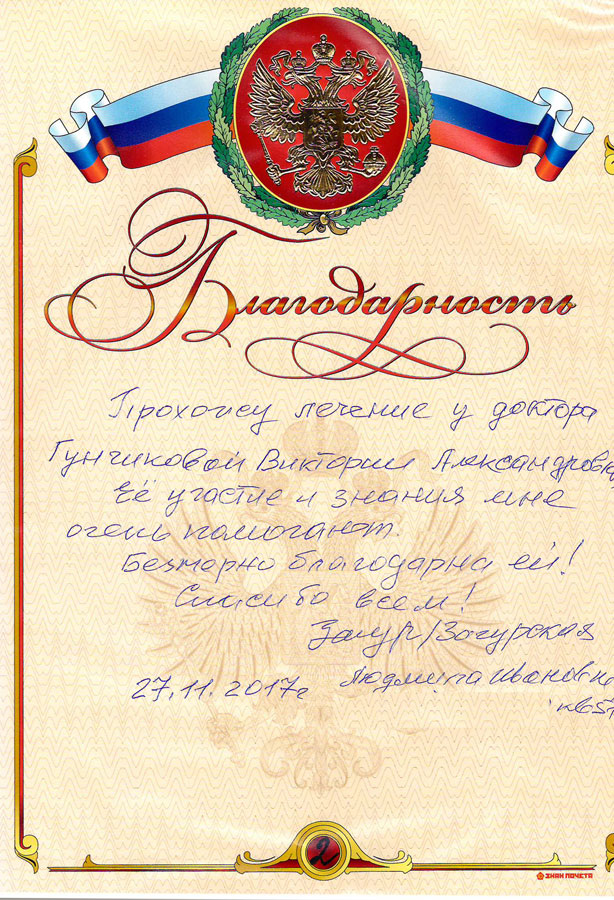 Благодарность
Прохожу лечение у доктора
Гунчиковой Виктории Александровн
Её участие и знания мне
очень помогают.
Безмерно благодарна ей!
Спасибо всем!
Загур/Загурская
27.11.2017г Людмила Ивановна
2
ЗНАК ПОЧЕТА